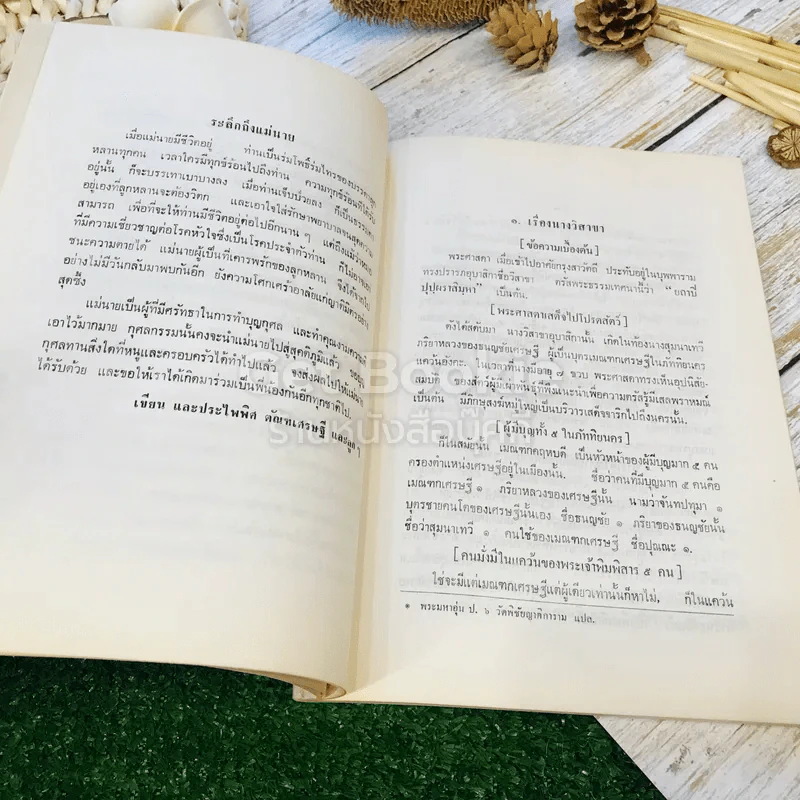 ระลึกถึงแม่นาย
เมื่อแม่นายมีชีวิตอยู่ ท่านเป็นร่มโพธิ์ร่มไทรของบรรดาลูก
หลานทุกคน เวลาใครมีทุกข์ร้อนไปถึงท่าน ความทุกข์ร้อนที่ได้รับ
อยู่นั้น ก็จะบรรเทาเบาบางลง เมื่อท่านเจ็บป่วยลง ก็เป็นธรรมดา
อยู่เองที่ลูกหลานจะต้องวิตก และเอาใจใส่รักษาพยาบาลจนสุดความ
สามารถ เพื่อที่จะให้ท่านมีชีวิตอยู่ต่อไปอีกนาน ๆ แต่ถึงแม้ว่าหมอ
ที่มีความเชี่ยวชาญต่อโรคหัวใจซึ่งเป็นโรคประจำตัวท่าน ก็ไม่อาจเอา
ชนะความตายได้ แม่นายผู้เป็นที่เคารพรักของลูกหลาน จึงได้จากไป
อย่างไม่มีวันกลับมาพบกันอีก ยังความโศกเศร้าอาลัยแก่ญาติมิตรอย่าง
สุดซึ้ง
แม่นายเป็นผู้ที่มีศรัทธาในการทำบุญกุศล และทำคุณงามความดี
เอาไว้มากมาย กุศลกรรมนั้นคงจะนำแม่นายไปสู่สุคติภูมิแล้ว ขอบุญ
กุศลทานสิ่งใดที่หนูและครอบครัวได้ทำไปแล้ว จงส่งผลไปให้แม่นาย
ได้รับด้วย และขอให้เราได้เกิดมาร่วมเป็นพี่น้องกันอีกทุกชาติไป.
เขียน และประไพพิศ ตัณฑเศรษฐี และลูก ๆ
๑. เรื่องนางวิสาขา
[ข้อความเบื้องต้น]
พระศาสดา เมื่อเข้าไปอาศัยกรุงสาวัตถี ประทับอยู่ในบุพพาราม
ทรงปรารภอุบาสิกาชื่อวิสาขา ตรัสพระธรรมเทศนานี้ว่า "ยถาปิ
ปุปฺผราสิมฺหา" เป็นต้น.
[พระศาสดาเสด็จไปโปรดสัตว์]
ดังได้สดับมา นางวิสาขาอุบาสิกานั้น เกิดในท้องนางสุมนาเทวี
ภริยาหลวงของธนญชัยเศรษฐี ผู้เป็นบุตรเมณฑกเศรษฐีในภัททิยนคร
แคว้นอังคะ. ในเวลาที่นางมีอายุ ๗ ขวบ พระศาสดาทรงเห็นอุปนิสัย-
สมบัติ ของสัตว์ผู้มีเผ่าพันธุ์ที่พึงแนะนำเพื่อความตรัสรู้มีเสลพราหมณ์
เป็นต้น มีภิกษุสงฆ์หมู่ใหญ่เป็นบริวารเสด็จจาริกไปถึงนครนั้น.
[ผู้มีบุญทั้ง ๕ ในภัททิยนคร]
ก็ในสมัยนั้น เมณฑกคฤหบดี เป็นหัวหน้าของผู้มีบุญมาก ๕ คน
ครองตำแหน่งเศรษฐีอยู่ในเมืองนั้น. ชื่อว่าคนที่มีบุญมาก ๕ คนคือ
เมณฑกเศรษฐี ๑ ภริยาหลวงของเศรษฐีนั้น นามว่าจันทปทุมา ๑
บุตรชายคนโตของเศรษฐีนั้นเอง ชื่อธนญชัย ๑ ภริยาของธนญชัยนั้น
ชื่อว่าสุมนาเทวี ๑ คนใช้ของเมณฑกเศรษฐี ชื่อปุณณะ ๑.
[คนมั่งมีในแคว้นของพระเจ้าพิมพิสาร ๕ คน]
ใช่จะมีแต่เมณฑกเศรษฐีแต่ผู้เดียวเท่านั้นก็หาไม่, ก็ในแคว้น
* พระมหาอุ่น ป. ๖ วัดพิชัยญาติการาม แปล.
Get Book
ร้านหนังสือบุ๊ค